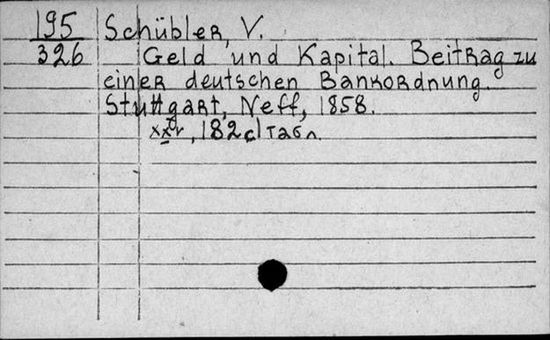 195 Schübler, V.
326 Geld und Kapital. Beitrag zu
einer deutschen Bankordnung.
Stuttgart, Neff, 1858.
182 c., 1 табл.